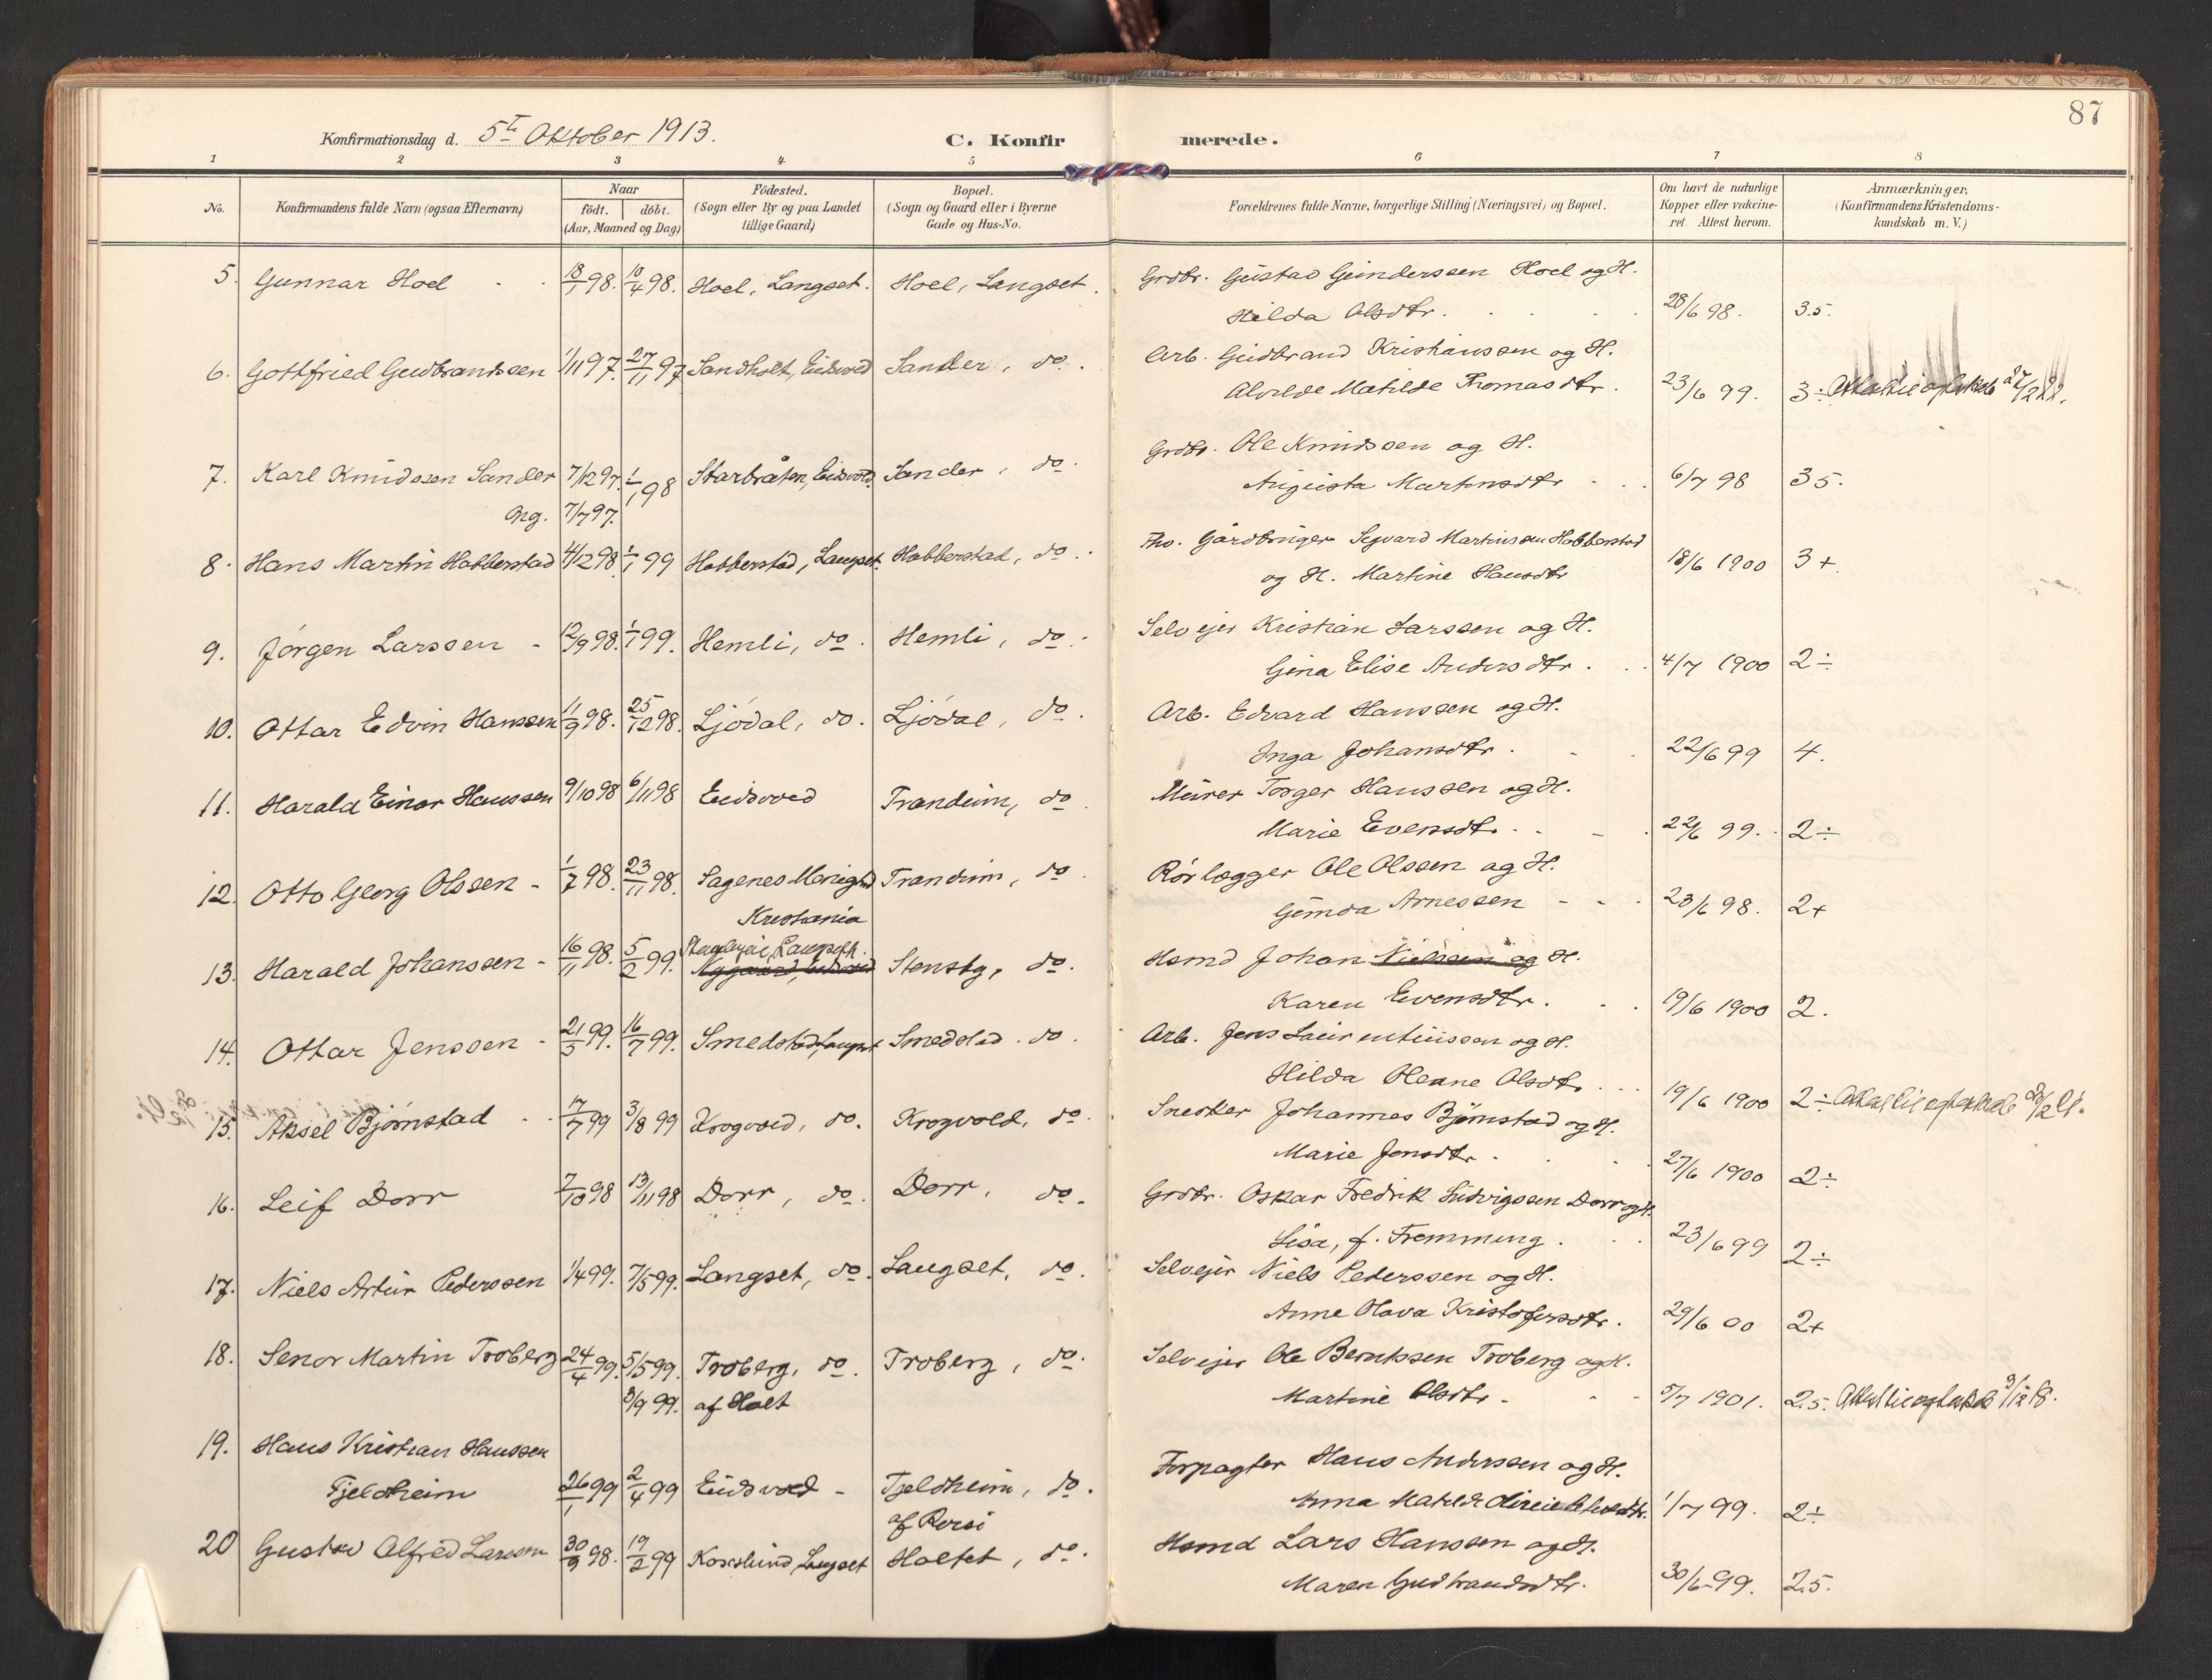 87
Konfirmationsdag d. 5te Oktober 1913.
C. Konfirmerede.
1 2 3 4 5 6 7 8
No.
Konfirmandens fulde Navn (ogsaa Efternavn)
Naar
födt. döbt.
(Aar, Maaned og Dag)
Födested.
(Sogn eller By og paa Landet
tillige Gaard)
Bopæl.
(Sogn og Gaard eller i Byerne
Gade og Hus-No.
Forældrenes fulde Navne, borgerlige Stilling (Næringsvei) og Bopæl.
Om havt de naturlige
Kopper eller vakcine-
ret. Attest herom.
Anmærkninger.
(Konfirmandens Kristendoms-
kundskab m. V.)
5. Gunnar Hoel 18/1 98. 10/4 98. Hoel, Langset. Hoel, Langset. Grdbr. Gustav Gunderssen Hoel og H.
Hilda Olsdtr. 28/6 98. 3.5.
6. Gottfried Gudbrandsen 1/11 97. 27/11 97 Sandholt, Eidsvold Sander, do. Arb. Gudbrand Kristianssen og H.
Alvilde Matilde Thomasdtr. 23/6 99. 3÷ 27/2 22.
7. Karl Knudssen Sander 7/12 97. 1/1 98 Starbråten, Eidsvold. Sander, do. Grdbr. Ole Knudssen og H.
Ang. 7/7 97. Augusta Martinsdtr 6/7 98 3 5.
8. Hans Martin Habberstad 4/12 98 1/1 99 Habberstad, Langset. Habberstad, do. Fhv. Gårdbruger Sigvard Martinssen Habberstad
og H. Martine Hansdtr 18/6 1900 3+
9. Jörgen Larssen 12/9 98. 1/1 99. Hemli, do. Hemli, do. Selvejer Kristian Larssen og H.
Gina Elise Andersdtr. 4/7 1900 2÷
10. Ottar Edvin Hanssen 11/9 98. 25/12 98. Ljödal, do. Ljödal, do. Arb. Edvard Hanssen og H.
Inga Johansdtr. 22/6 99 4.
11. Harald Einar Hanssen 9/10 98 6/11 98 Eidsvold Trandum, do Murer Torger Hanssen og H.
Marie Evensdtr. 22/6 99. 2÷
12. Otto Georg Olssen 1/7 98. 23/11 98. Sagenes Menighd Trandum, do. Rörlægger Ole Olssen og H.
Kristiania Gunda Arnessen 23/6 98. 2+
13. Harald Johanssen 16/11 98. 5/2 99. Langseth. Stensby, do. Hsmd Johan Nielssen og H.
Nygaard, Eidsvold Karen Evensdtr. 19/6 1900 2.
14. Ottar Jenssen 21/5 99. 16/7 99. Smedstad, Langset Smedstad. do. Arb. Jens Laurentiussen og H.
Hilda Oleane Olsdtr 19/6 1900 2÷
15. Aksel Björnstad 17/7 99 3/8 99 Krogvold, do. Krogvold, do. Snedker Johannes Björnstad og H.
Marie Jensdtr. 27/6 1900 2÷
16. Leif Dorr 7/10 98 13/11 98 Dorr, do. Dorr, do. Grdbr. Oskar Fredrik Ludvigssen Dorr og H.
Lisa, f. Fremming. 23/6 99 2÷
17. Niels Artur Pederssen 1/4 99. 7/5 99. Langset, do. Langset, do. Selvejer Niels Pederssen og H.
Anne Olava Kristofersdtr. 29/6 00 2+
18. Senor Martin Troberg 24/4 99. 5/5 99. Troberg, do. Troberg, do. Selvejer Ole Berntssen Troberg og H.
3/9 99. af Holt Martine Olsdtr. 5/7 1901. 2.5. 3/12 18.
19. Hans Kristian Hanssen Forpagter Hans Anderssen og H.
Fjeldheim 26/1 99 2/4 99 Eidsvold Fjeldheim, do. Anna Matilde 1/7 99. 2÷
af Rersi
20 Gustav Alfred Larssen 30/9 98. 19/2 99 Korslund, Langset Holtet, do. Hsmd Lars Hanssen og H.
Maren Gudbrandsdtr. 30/6 99. 2.5.